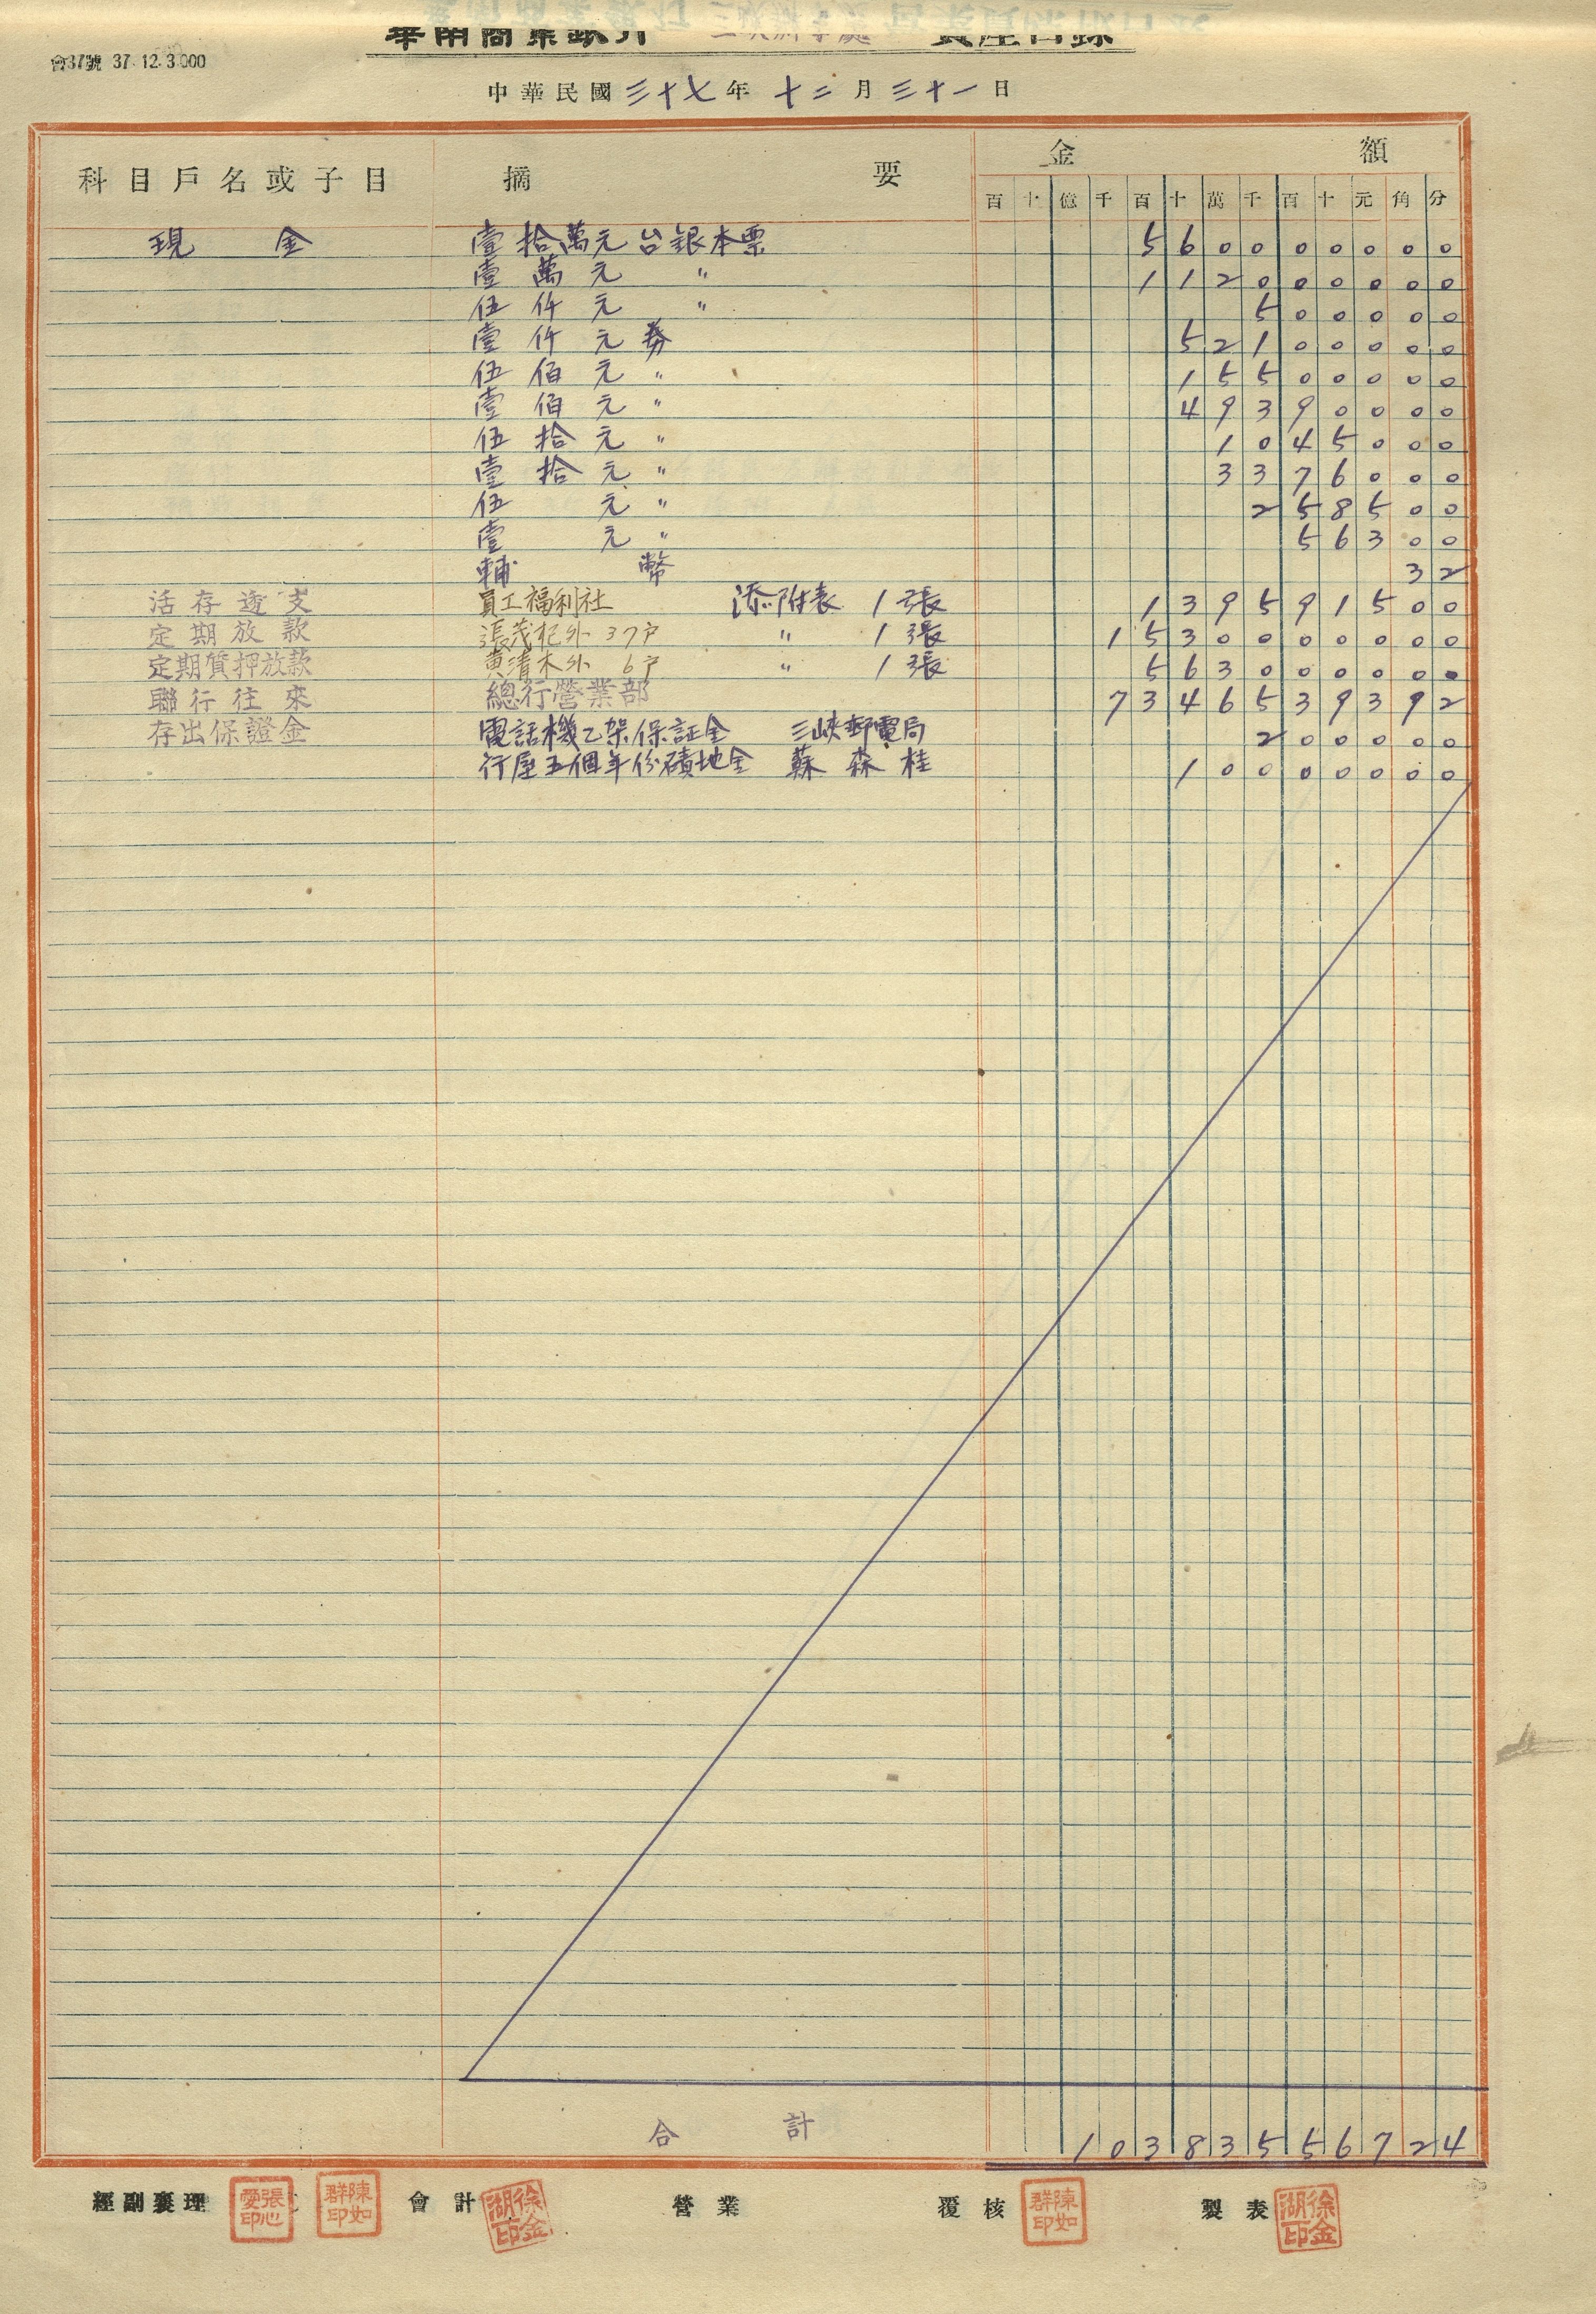 華南商業銀行 三峽辦事處 資產目錄
會37號 37.12.3.000
中華民國三十七年十二月三十一日
科目戶名或子目 摘要 金額
百十億千百十萬千百十元角分
現金 壹拾萬元台銀本票 560000000
壹萬元 〃 112000000
伍仟元 〃 500000
壹仟元券 52100000
伍佰元〃 15500000
壹佰元〃 49390000
伍拾元〃 1045000
壹拾元〃 3376000
伍元〃 258500
壹元〃 56300
輔幣 32
活存透支 員工福利社 添附表 1張 139591500
定期放款 張茂杞外37戶 〃 1張 1530000000
定期質押放款 黃清木外6戶 〃 1張 563000000
聯行往來 總行營業部 7346539392
存出保證金 電話機乙架保証金 三峽郵電局 200000
行屋五個年份磧地金 蘇森桂 10000000
合計 10383556724
經副襄理 張心愛印 陳如群印 會計 徐金湖印 營業 覆核 陳如群印 製表 徐金湖印